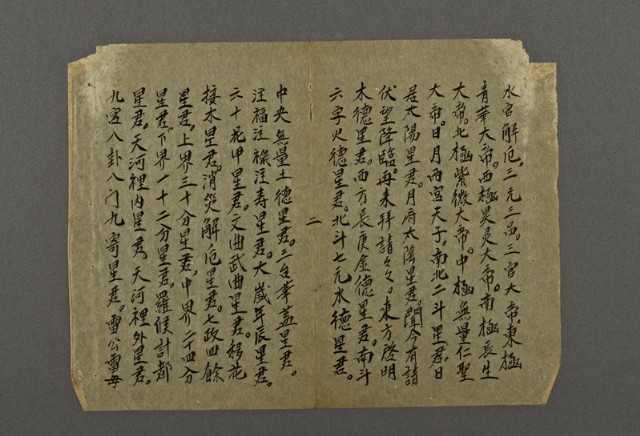 水官解厄。三元三品。三官大帝。東極
青華大帝。西極昊灵大帝。南極長生
大帝。北極紫微大帝。中極無量仁聖
大帝。日月兩宮天子。南北二斗星君。日
居太陽星君。月府太陰星君。聞今有請
伏望降臨。再来拜請々々。東方啓明
木德星君。西方長庚金德星君。南斗
六字火德星君。北斗七元水德星君。
二
中央無量土德星君。三台華盖星君。
注福注祿注寿星君。大歲年辰星君。
六十花甲星君。文曲武曲星君。移花
接木星君。消災解厄星君。七政四餘
星君。上界三十分星君。中界二十四分
星君。下界一十二分星君。羅候計都
星君。天河裡内星君。天河裡外星君。
九宮八卦八门九寄星君。雷公雷母